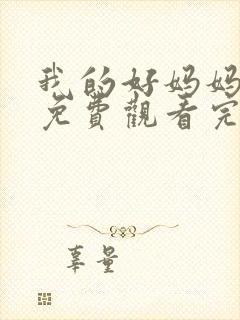 我的好妈妈
免费觀看完
辜量